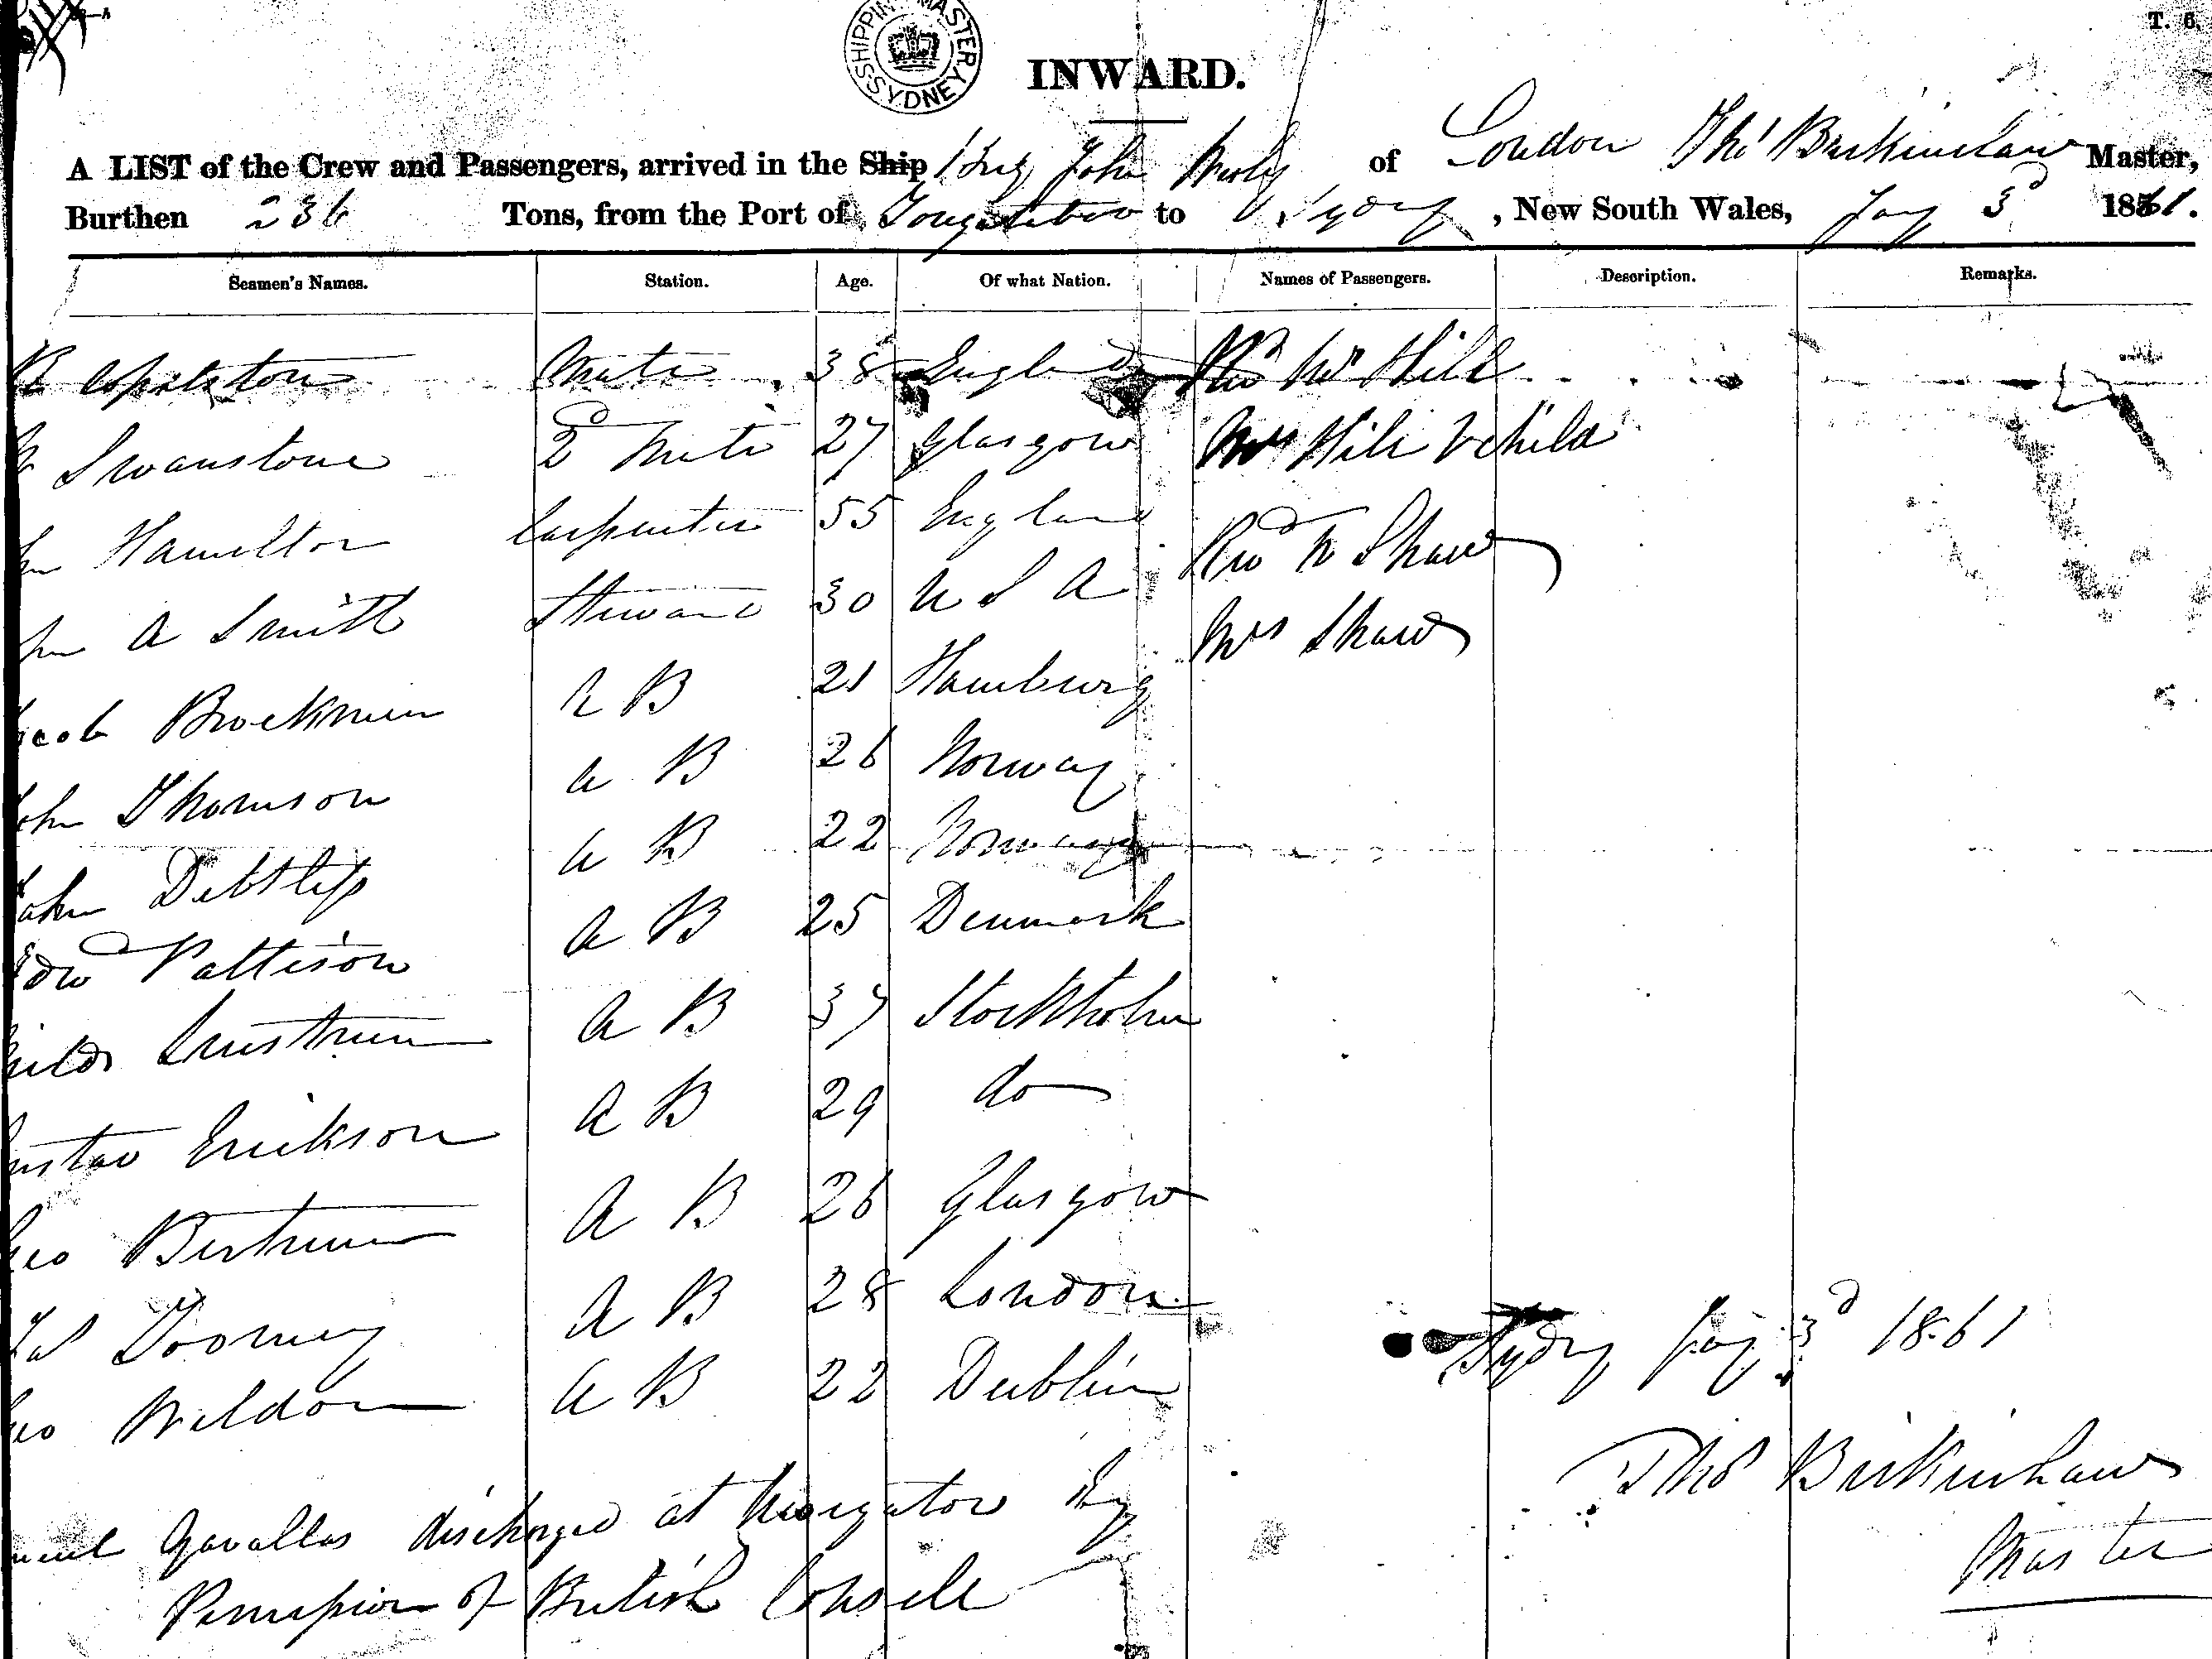 T. 6.
SHIPPING MASTER SYDNEY
INWARD.
A LIST of the Crew and Passengers, arrived in the Ship Brig John Wesley of London Thos Birkinshaw Master,
Burthen 236 Tons, from the Port of Tongataboo to Sydney, New South Wales, Jany 3d 1861.
Seamen's Names. Station. Age. Of what Nation. Names of Passengers. Description. Remarks.
Copelston Mate 38 England Revd Wm Hill
Swanstone 2d Mate 27 Glasgow Mrs Hill & child
Hamilton Carpenter 55 England Revd W Shaw
A Smith Steward 30 U S A Mrs Shaw
Jacob Brockmin A B 21 Hamburg
John Thomson A B 26 Norway
John Debtlip A B 22 Norway
Edwd Pattison A B 25 Denmark
A B 37 Stockholm
Gustav Erickson A B 29 do
Geo Bertrum A B 26 Glasgow
Jas Toomey A B 28 London
Geo Weldon A B 22 Dublin
Sydney Jany 3d 1861
Thos Birkinshaw
Master
discharged at Navigator by
Permission of British Consell